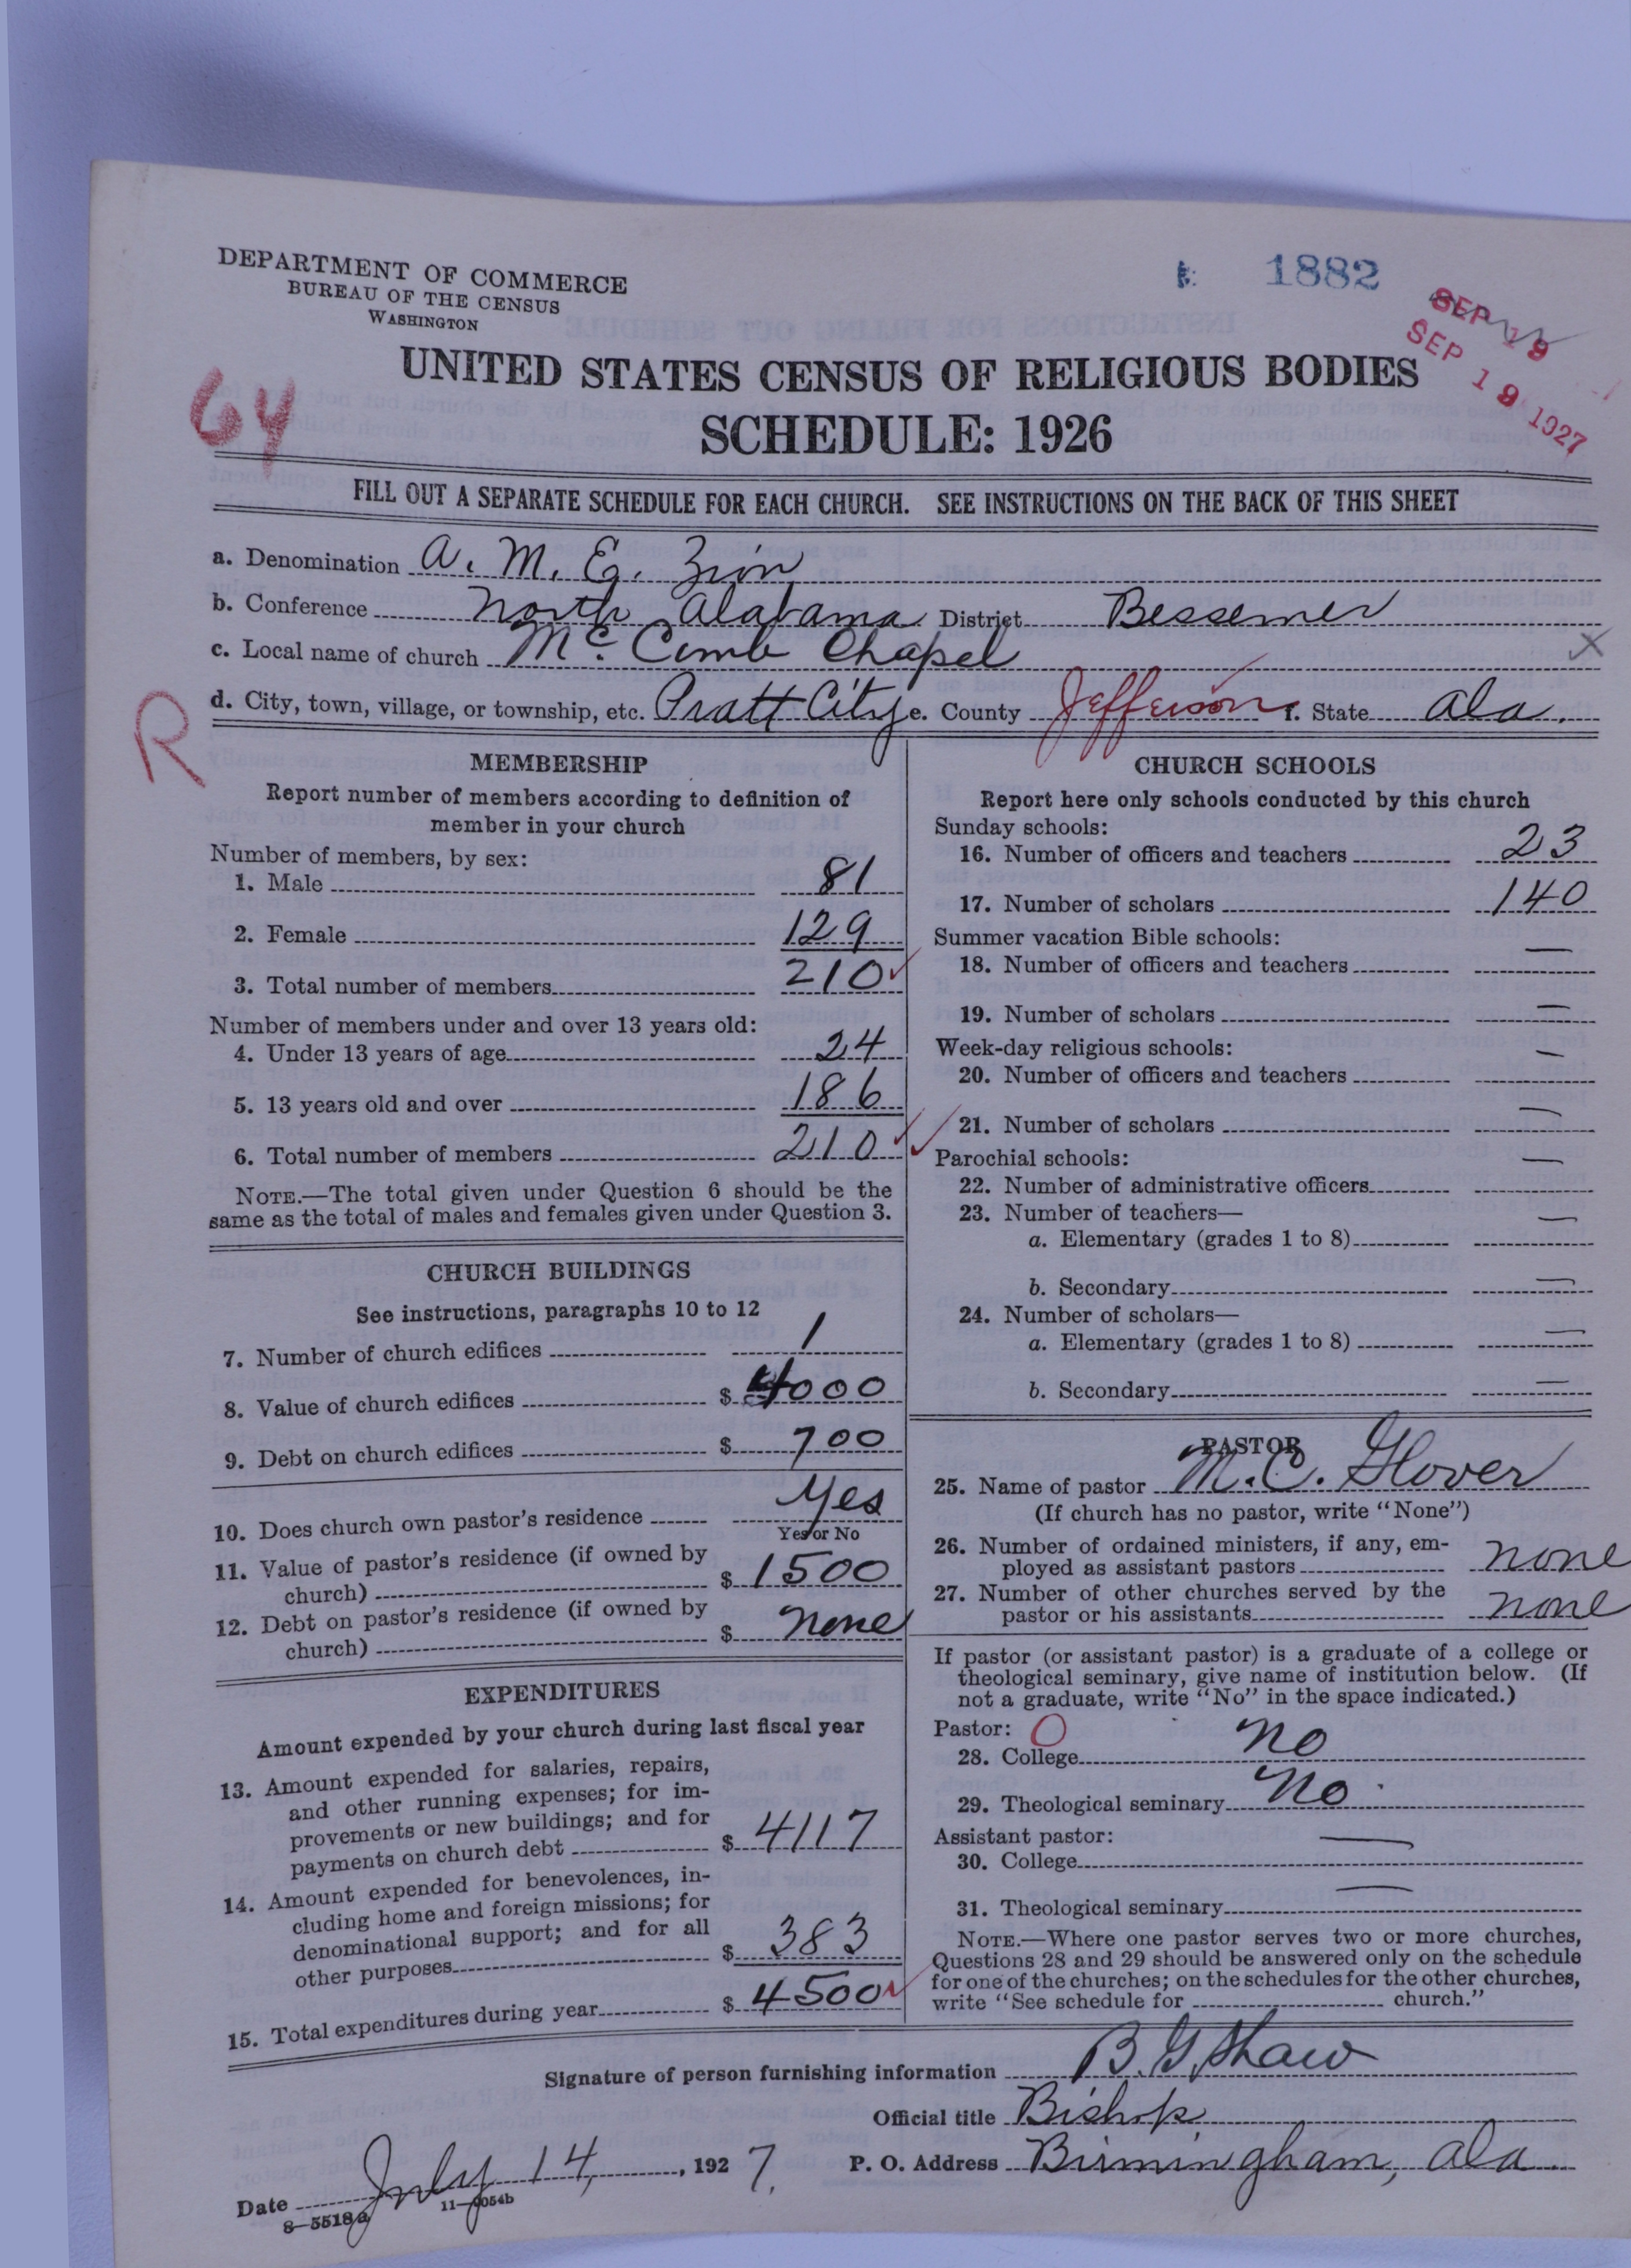 DEPARTMENT OF COMMERCE
BUREAU OF THE CENSUS
WASHINGTON
1882
SEP 19
SEP 19 1927
64
UNITED STATES CENSUS OF RELIGIOUS BODIES
SCHEDULE: 1926
FILL OUT A SEPARATE SCHEDULE FOR EACH CHURCH. SEE INSTRUCTIONS ON THE BACK OF THIS SHEET
a. Denomination A. M. E. Zion
b. Conference North Alabama District Bessemer
c. Local name of church Mc. Comb Chapel
X
R
d. City, town, village, or township, etc. Pratt City e. County Jefferson f. State Ala.
MEMBERSHIP
Report number of members according to definition of
member in your church
Number of members, by sex:
1. Male 81
2. Female 129
3. Total number of members 210
Number of members under and over 13 years old:
4. Under 13 years of age 24
5. 13 years old and over 186
6. Total number of members 210
NOTE.—The total given under Question 6 should be the
same as the total of males and females given under Question 3.
CHURCH BUILDINGS
See instructions, paragraphs 10 to 12
7. Number of church edifices 1
8. Value of church edifices $ 4000
9. Debt on church edifices $ 700
10. Does church own pastor's residence Yes
Yes or No
11. Value of pastor's residence (if owned by
church) $ 1500
12. Debt on pastor's residence (if owned by
church) $ none
EXPENDITURES
Amount expended by your church during last fiscal year
13. Amount expended for salaries, repairs,
and other running expenses; for im-
provements or new buildings; and for
payments on church debt $ 4117
14. Amount expended for benevolences, in-
cluding home and foreign missions; for
denominational support; and for all
other purposes $ 383
15. Total expenditures during year $ 4500
CHURCH SCHOOLS
Report here only schools conducted by this church
Sunday schools:
16. Number of officers and teachers 23
17. Number of scholars 140
Summer vacation Bible schools:
18. Number of officers and teachers —
19. Number of scholars —
Week-day religious schools:
20. Number of officers and teachers —
21. Number of scholars —
Parochial schools:
22. Number of administrative officers —
23. Number of teachers—
a. Elementary (grades 1 to 8) —
b. Secondary —
24. Number of scholars—
a. Elementary (grades 1 to 8) —
b. Secondary —
PASTOR
25. Name of pastor M. C. Glover
(If church has no pastor, write "None")
26. Number of ordained ministers, if any, em-
ployed as assistant pastors none
27. Number of other churches served by the
pastor or his assistants none
If pastor (or assistant pastor) is a graduate of a college or
theological seminary, give name of institution below. (If
not a graduate, write "No" in the space indicated.)
Pastor: O
28. College No
29. Theological seminary No
Assistant pastor:
30. College —
31. Theological seminary —
NOTE.—Where one pastor serves two or more churches,
Questions 28 and 29 should be answered only on the schedule
for one of the churches; on the schedules for the other churches,
write "See schedule for church."
Signature of person furnishing information B. G. Shaw
Official title Bishop
Date July 14, 1927. P. O. Address Birmingham, Ala.
8—5518a 11—9054b